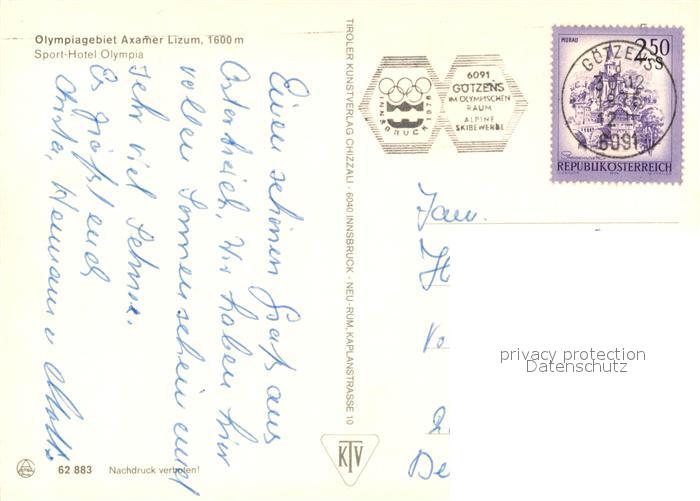 Olympiagebiet Axamer Lizum, 1600 m
Sport-Hotel Olympia
Einen schönen Gruß aus
Österreich, Wir haben hier
vollen Sonnenschein und
sehr viel Schnee.
Es grüßt euch
Christa, Hermann u
62 883 Nachdruck verboten!
TIROLER KUNSTVERLAG CHIZZALI · 6040 INNSBRUCK - NEU-RUM, KAPLANSTRASSE 10
KTV
INNSBRUCK 1976
6091
GÖTZENS
IM OLYMPISCHEN
RAUM
ALPINE
SKIBEWERBE
MURAU
2.50
S
GÖTZENS
6091
REPUBLIK ÖSTERREICH
Fam.
H
De
privacy protection
Datenschutz